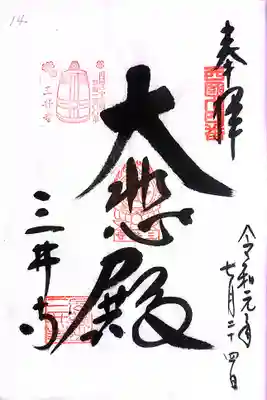 奉拝
令和元年
七月二十四日
大悲殿
三井寺
三井寺
14